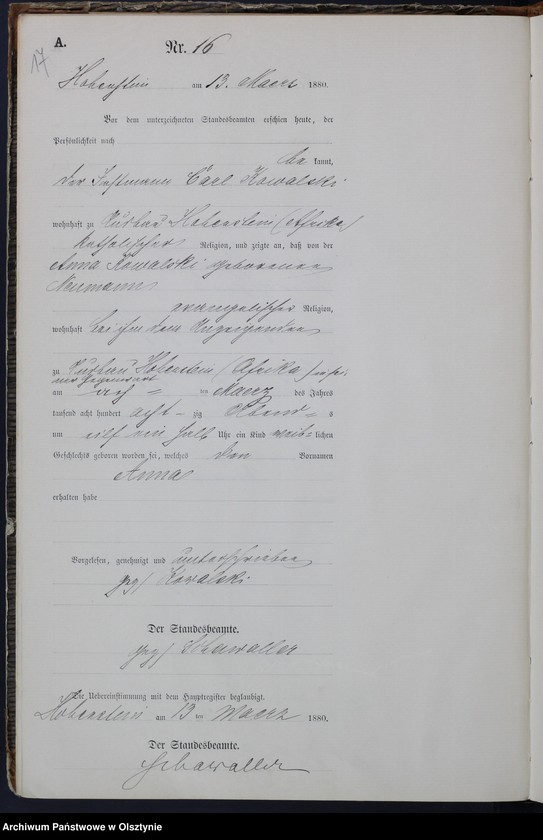 17
A.
Nr. 16
Hohenstein am 13. Maerz 1880.
Vor dem unterzeichneten Standesbeamten erschien heute, der
Persönlichkeit nach
be kannt,
der Carl Kowalski
wohnhaft zu Hohenstein (Afrika)
katholischer Religion, und zeigte an, daß von der
Anna Kowalski geborenen
Neumann
evangelischer Religion,
wohnhaft bei ihm dem Anzeigenden
zu Hohenstein (Afrika) in sei-
ner Gegenwart
am ach- ten Maerz des Jahres
tausend acht hundert acht- zig Abend- s
um eilf ein halb Uhr ein Kind weib- lichen
Geschlechts geboren worden sei, welches den Vornamen
Anna
erhalten habe
Vorgelesen, genehmigt und unterschrieben
gez/ Kowalski
Der Standesbeamte.
gez/ Schawaller
Die Uebereinstimmung mit dem Hauptregister beglaubigt.
Hohenstein am 13 ten Maerz 1880.
Der Standesbeamte.
Schawaller
Archiwum Państwowe w Olsztynie